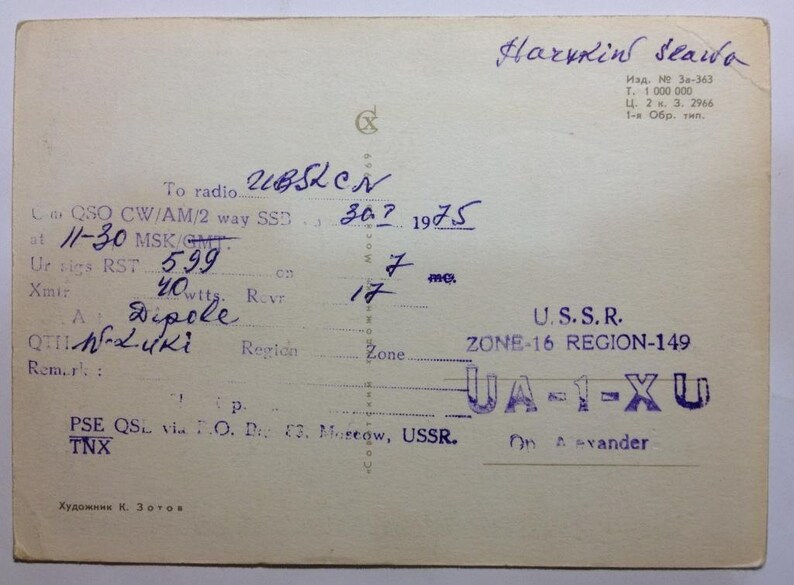 Изд. № 3а-363
Т. 1 000 000
Ц. 2 к. З. 2966
1-я Обр. тип.
To radio UB5LCN
QSO CW/AM/2 way SSB 30 1975
at 11-30 MSK/GMT.
Ur sigs RST 599 on 7 mc.
Xmtr 40 wtts. Rcvr 17
Dipole
QTH W-Luki Region Zone
Remark:
PSE QSL via P.O. Box 83, Moscow, USSR.
TNX
U.S.S.R.
ZONE-16 REGION-149
UA-1-XU
Op. Alexander
«Советский художник» Москва 1969
Художник К. Зотов